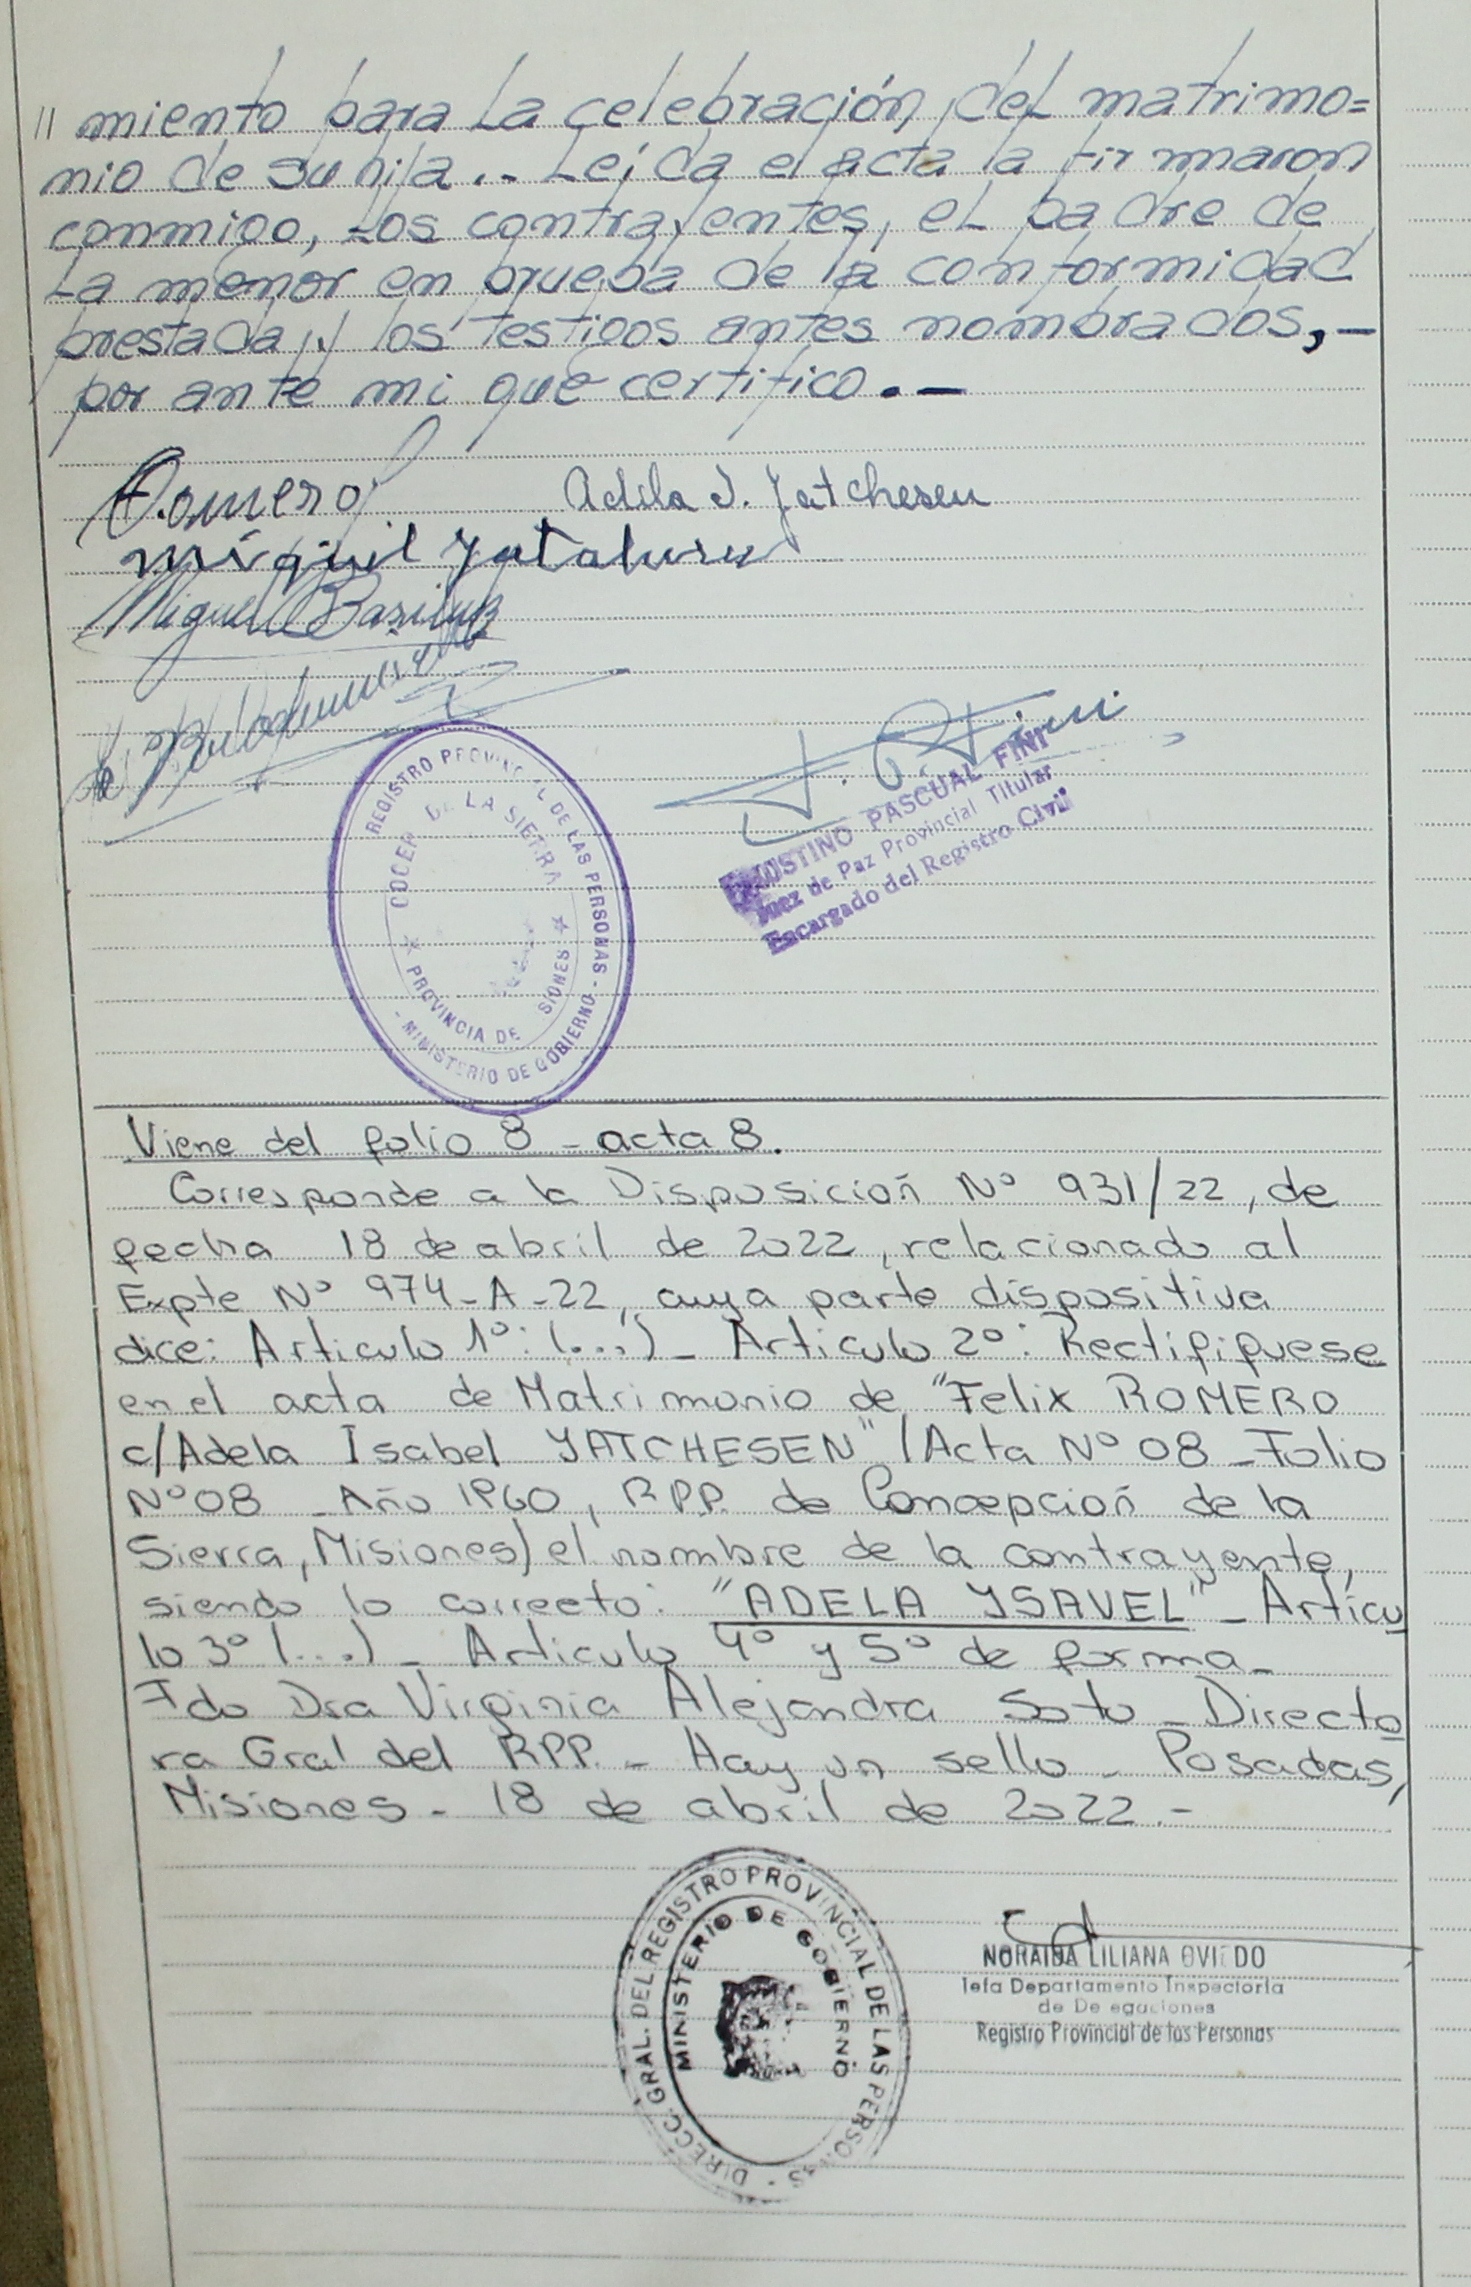 // miento para la celebración del matrimo=
nio de su hija.. Leída el acta la firmaron
conmigo, los contrayentes, el padre de
la menor en prueba de la conformidad
prestada y los testigos antes nombrados,-
por ante mi que certifico.-
Romero
Adela I. Yatchesen
Miguel
Miguel
REGISTRO PROVINCIAL DE LAS PERSONAS - MINISTERIO DE GOBIERNO -
DE LA SIERRA
PROVINCIA DE SIONES
PASCUAL FINI
Juez de Paz Provincial Titular
Encargado del Registro Civil
Viene del folio 8 - acta 8.
Corresponde a la Disposición Nº 931/22, de
fecha 18 de abril de 2022, relacionado al
Expte Nº 974-A-22, cuya parte dispositiva
dice: Articulo 1º: (...) - Articulo 2º: Rectifiquese
en el acta de Matrimonio de "Felix ROMERO
c/Adela Isabel YATCHESEN" (Acta Nº 08 - Folio
Nº 08 - Año 1960, RPP. de Concepción de la
Sierra, Misiones) el nombre de la contrayente,
siendo lo correcto: "ADELA YSAVEL" - Artícu
lo 3º (...) - Articulo 4º y 5º de forma -
Fdo Dra Virginia Alejandra Soto - Directo
ra Gral del RPP. - Hay un sello - Posadas,
Misiones - 18 de abril de 2022.-
DIRECC. GRAL. DEL REGISTRO PROVINCIAL DE LAS PERSONAS
MINISTERIO DE GOBIERNO
NORAIDA LILIANA OVIEDO
Jefa Departamento Inspectoria
de De egaciones
Registro Provincial de las Personas